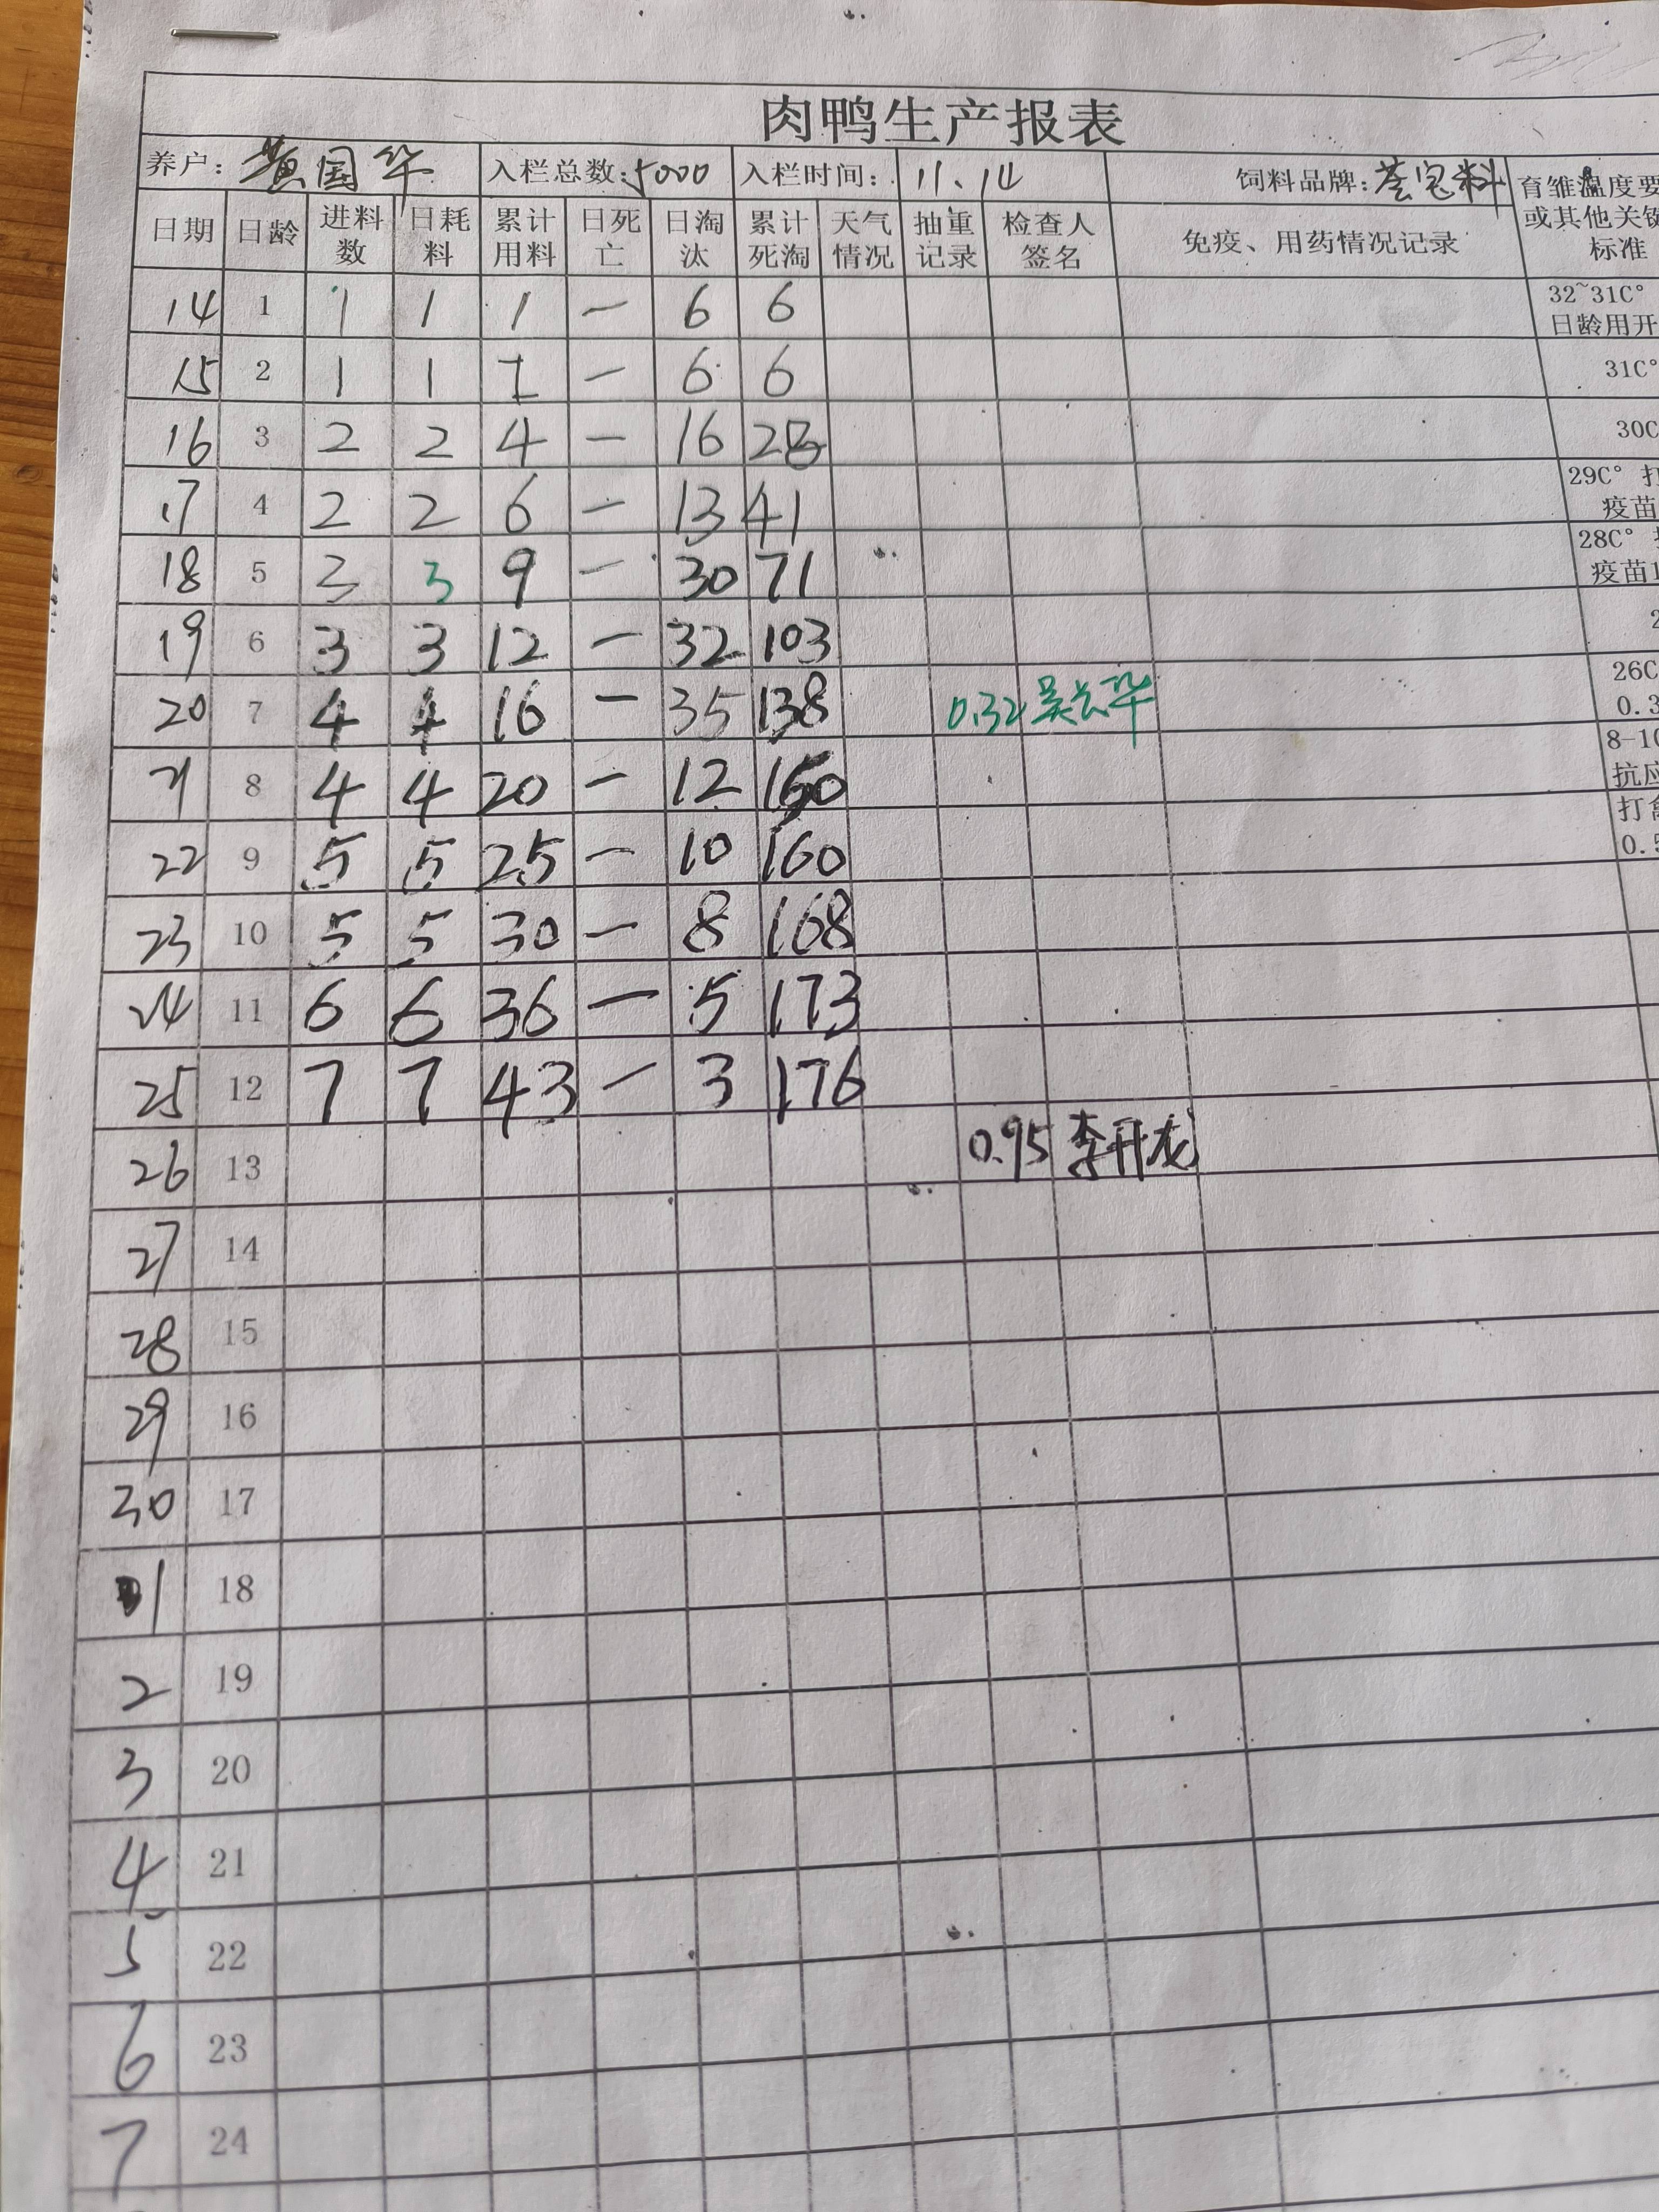 肉鸭生产报表
养户: 黄国华 入栏总数: 5000 入栏时间: 11.14 饲料品牌: 宝料 育雏温度要
日期 日龄 进料数 日耗料 累计用料 日死亡 日淘汰 累计死淘 天气情况 抽重记录 检查人签名 免疫、用药情况记录 或其他关键 标准
14 1 1 1 1 — 6 6 32~31C° 日龄用开
15 2 1 1 1 — 6 6 31C°
16 3 2 2 4 — 16 28 30C
17 4 2 2 6 — 13 41 29C° 打 疫苗
18 5 3 3 9 — 30 71 28C° 疫苗1
19 6 3 3 12 — 32 103 2
20 7 4 4 16 — 35 138 0.32 吴云华 26C 0.3
21 8 4 4 20 — 12 150 8-10 抗应
22 9 5 5 25 — 10 160 打禽 0.5
23 10 5 5 30 — 8 168
24 11 6 6 36 — 5 173
25 12 7 7 43 — 3 176
26 13 0.95 李开龙
27 14
28 15
29 16
30 17
1 18
2 19
3 20
4 21
5 22
6 23
7 24